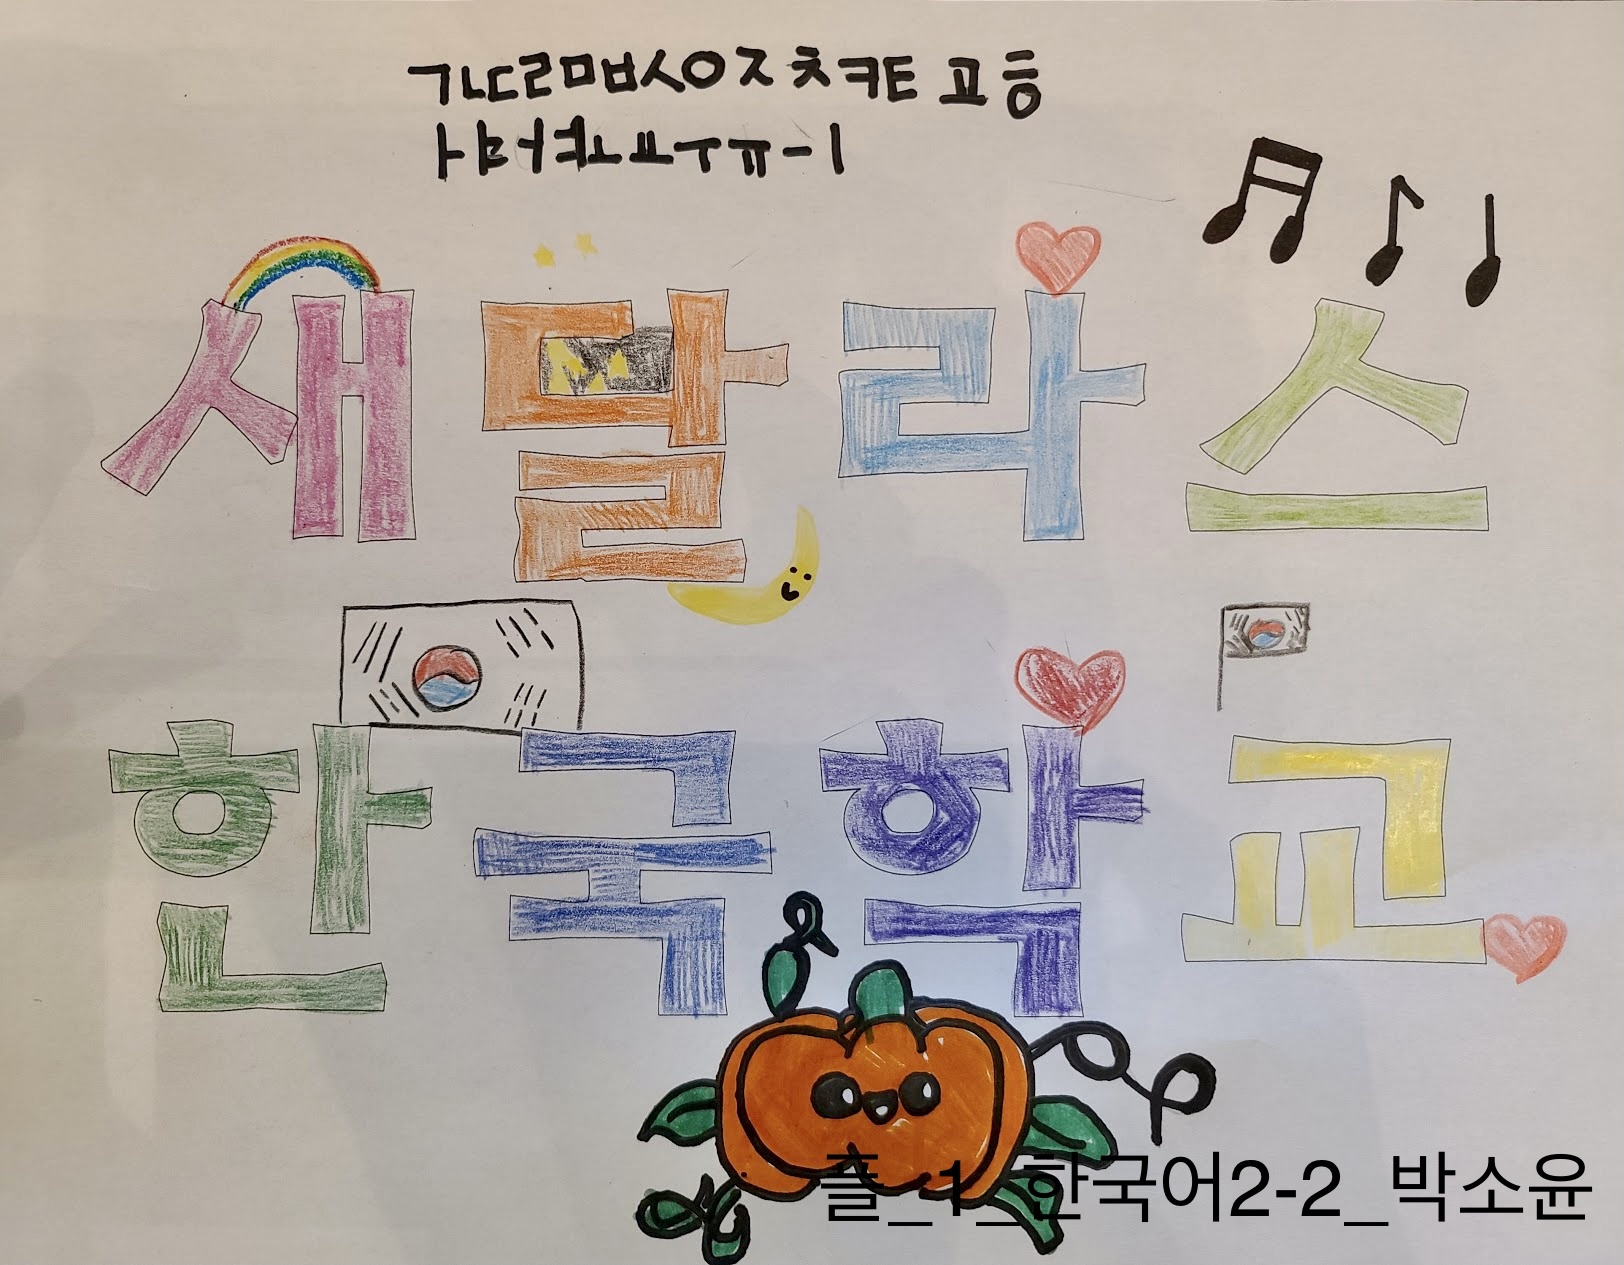 ㄱㄴㄷㄹㅁㅂㅅㅇㅈㅊㅋㅌ ㅍ ㅎ
ㅏㅑㅓㅕㅗㅛㅜㅠㅡㅣ
새달라스
한국학교
플_1_한국어2-2_박소윤